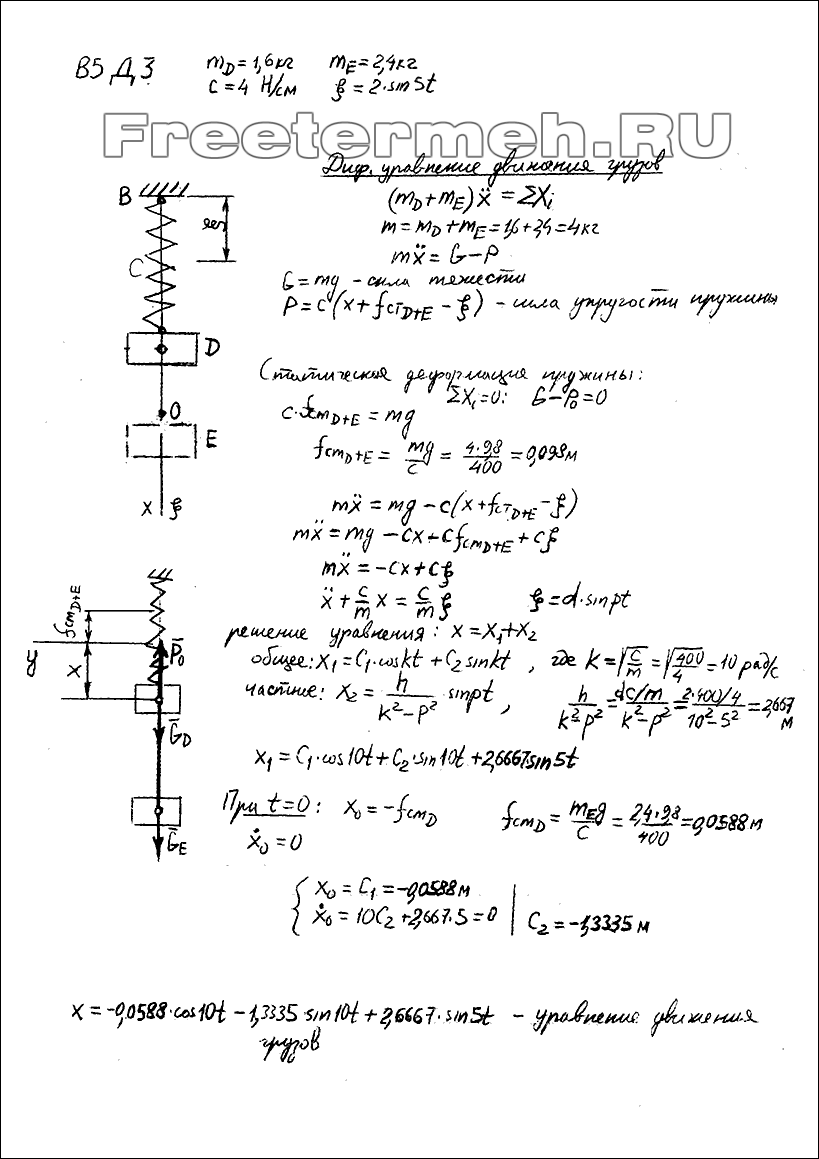 В5 Д3 m_D=1,6кг m_E=2,4кг
c=4 Н/см ξ=2·sin5t
Freetermeh.RU
Диф. уравнение движения грузов
(m_D+m_E)ẍ=ΣX_i
m=m_D+m_E=1,6+2,4=4кг
mẍ=G-P
G=mg - сила тяжести
P=c(x+f_стD+E-ξ) - сила упругости пружины
B
C
D
O
E
x ξ
Статическая деформация пружины:
ΣX_i=0: G-P₀=0
c·f_стD+E=mg
f_стD+E=mg/c=4·9,8/400=0,098м
mẍ=mg-c(x+f_стD+E-ξ)
mẍ=mg-cx+cf_стD+E+cξ
mẍ=-cx+cξ
ẍ+c/m x=c/m ξ ξ=d·sinpt
решение уравнения: x=x₁+x₂
общее: x₁=C₁·coskt+C₂sinkt, где k=√c/m=√400/4=10 рад/с
частное: x₂=h/k²-p² · sinpt, h/k²-p²=dc/m/k²-p²=2·400/4/10²-5²=2,667 м
x₁=C₁·cos10t+C₂·sin10t+2,6667sin5t
При t=0: x₀=-f_стD f_стD=m_Eg/c=2,4·9,8/400=0,0588м
ẋ₀=0
f_стD+E
y
x
P̄₀
Ḡ_D
Ḡ_E
{ x₀=C₁=-0,0588м
ẋ₀=10C₂+2,667·5=0 | C₂=-1,3335м
x=-0,0588·cos10t-1,3335·sin10t+2,6667·sin5t - уравнение движения
грузов